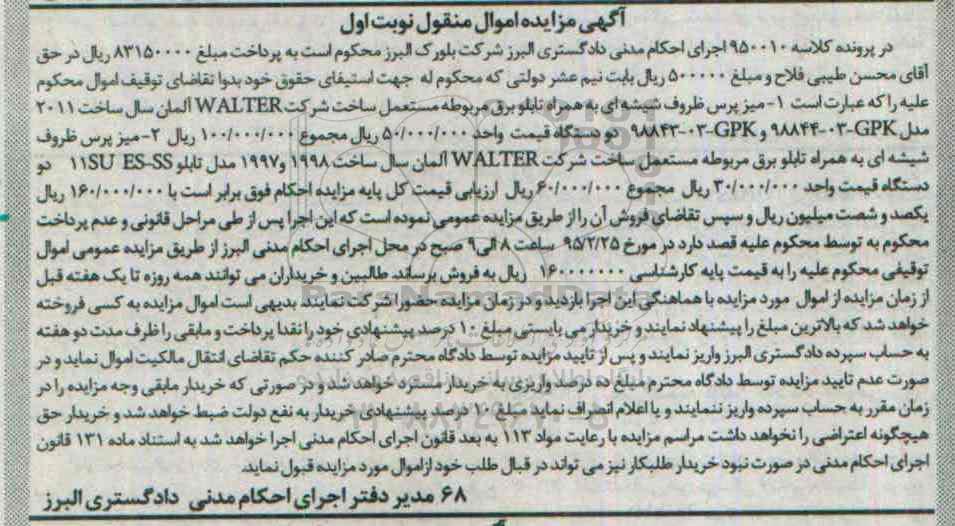 آگهی مزایده اموال منقول نوبت اول
در پرونده کلاسه ۹۵۰۰۱۰ اجرای احکام مدنی دادگستری البرز شرکت بلورک البرز محکوم است به پرداخت مبلغ ۸۳۱۵۰۰۰۰ ریال در حق
آقای محسن طیبی فلاح و مبلغ ۵۰۰۰۰۰ ریال بابت نیم عشر دولتی که محکوم له جهت استیفای حقوق خود بدوا تقاضای توقیف اموال محکوم
علیه را که عبارت است ۱-میز پرس ظروف شیشه ای به همراه تابلو برق مربوطه مستعمل ساخت شرکت WALTER آلمان سال ساخت ۲۰۱۱
مدل GPK-۰۳-۹۸۸۴۴ و GPK-۰۳-۹۸۸۴۳ دو دستگاه قیمت واحد ۵۰/۰۰۰/۰۰۰ ریال مجموع ۱۰۰/۰۰۰/۰۰۰ ریال ۲-میز پرس ظروف
شیشه ای به همراه تابلو برق مربوطه مستعمل ساخت شرکت WALTER آلمان سال ساخت ۱۹۹۸ و۱۹۹۷ مدل تابلو ۱۱SU ES-SS دو
دستگاه قیمت واحد ۳۰/۰۰۰/۰۰۰ ریال مجموع ۶۰/۰۰۰/۰۰۰ ریال ارزیابی قیمت کل پایه مزایده احکام فوق برابر است با ۱۶۰/۰۰۰/۰۰۰ ریال
یکصد و شصت میلیون ریال و سپس تقاضای فروش آن را از طریق مزایده عمومی نموده است که این اجرا پس از طی مراحل قانونی و عدم پرداخت
محکوم به توسط محکوم علیه قصد دارد در مورخ ۹۵/۲/۲۵ ساعت ۸ الی ۹ صبح در محل اجرای احکام مدنی البرز از طریق مزایده عمومی اموال
توقیفی محکوم علیه را به قیمت پایه کارشناسی ۱۶۰۰۰۰۰۰۰ ریال به فروش برساند. طالبین و خریداران می توانند همه روزه تا یک هفته قبل
از زمان مزایده از اموال مورد مزایده با هماهنگی این اجرا بازدید و در زمان مزایده حضورا شرکت نمایند بدیهی است اموال مزایده به کسی فروخته
خواهد شد که بالاترین مبلغ را پیشنهاد نمایند و خریدار می بایستی مبلغ ۱۰ درصد پیشنهادی خود را نقدا پرداخت و مابقی را ظرف مدت دو هفته
به حساب سپرده دادگستری البرز واریز نمایند و پس از تایید مزایده توسط دادگاه محترم صادر کننده حکم تقاضای انتقال مالکیت اموال نماید و در
صورت عدم تایید مزایده توسط دادگاه محترم مبلغ ده درصد واریزی به خریدار مسترد خواهد شد و در صورتی که خریدار مابقی وجه مزایده را در
زمان مقرر به حساب سپرده واریز ننمایند و یا اعلام انصراف نماید مبلغ ۱۰ درصد پیشنهادی خریدار به نفع دولت ضبط خواهد شد و خریدار حق
هیچگونه اعتراضی را نخواهد داشت مراسم مزایده با رعایت مواد ۱۱۳ به بعد قانون اجرای احکام مدنی اجرا خواهد شد به استناد ماده ۱۳۱ قانون
اجرای احکام مدنی در صورت نبود خریدار طلبکار نیز می تواند در قبال طلب خود ازاموال مورد مزایده قبول نماید.
۶۸ مدیر دفتر اجرای احکام مدنی دادگستری البرز